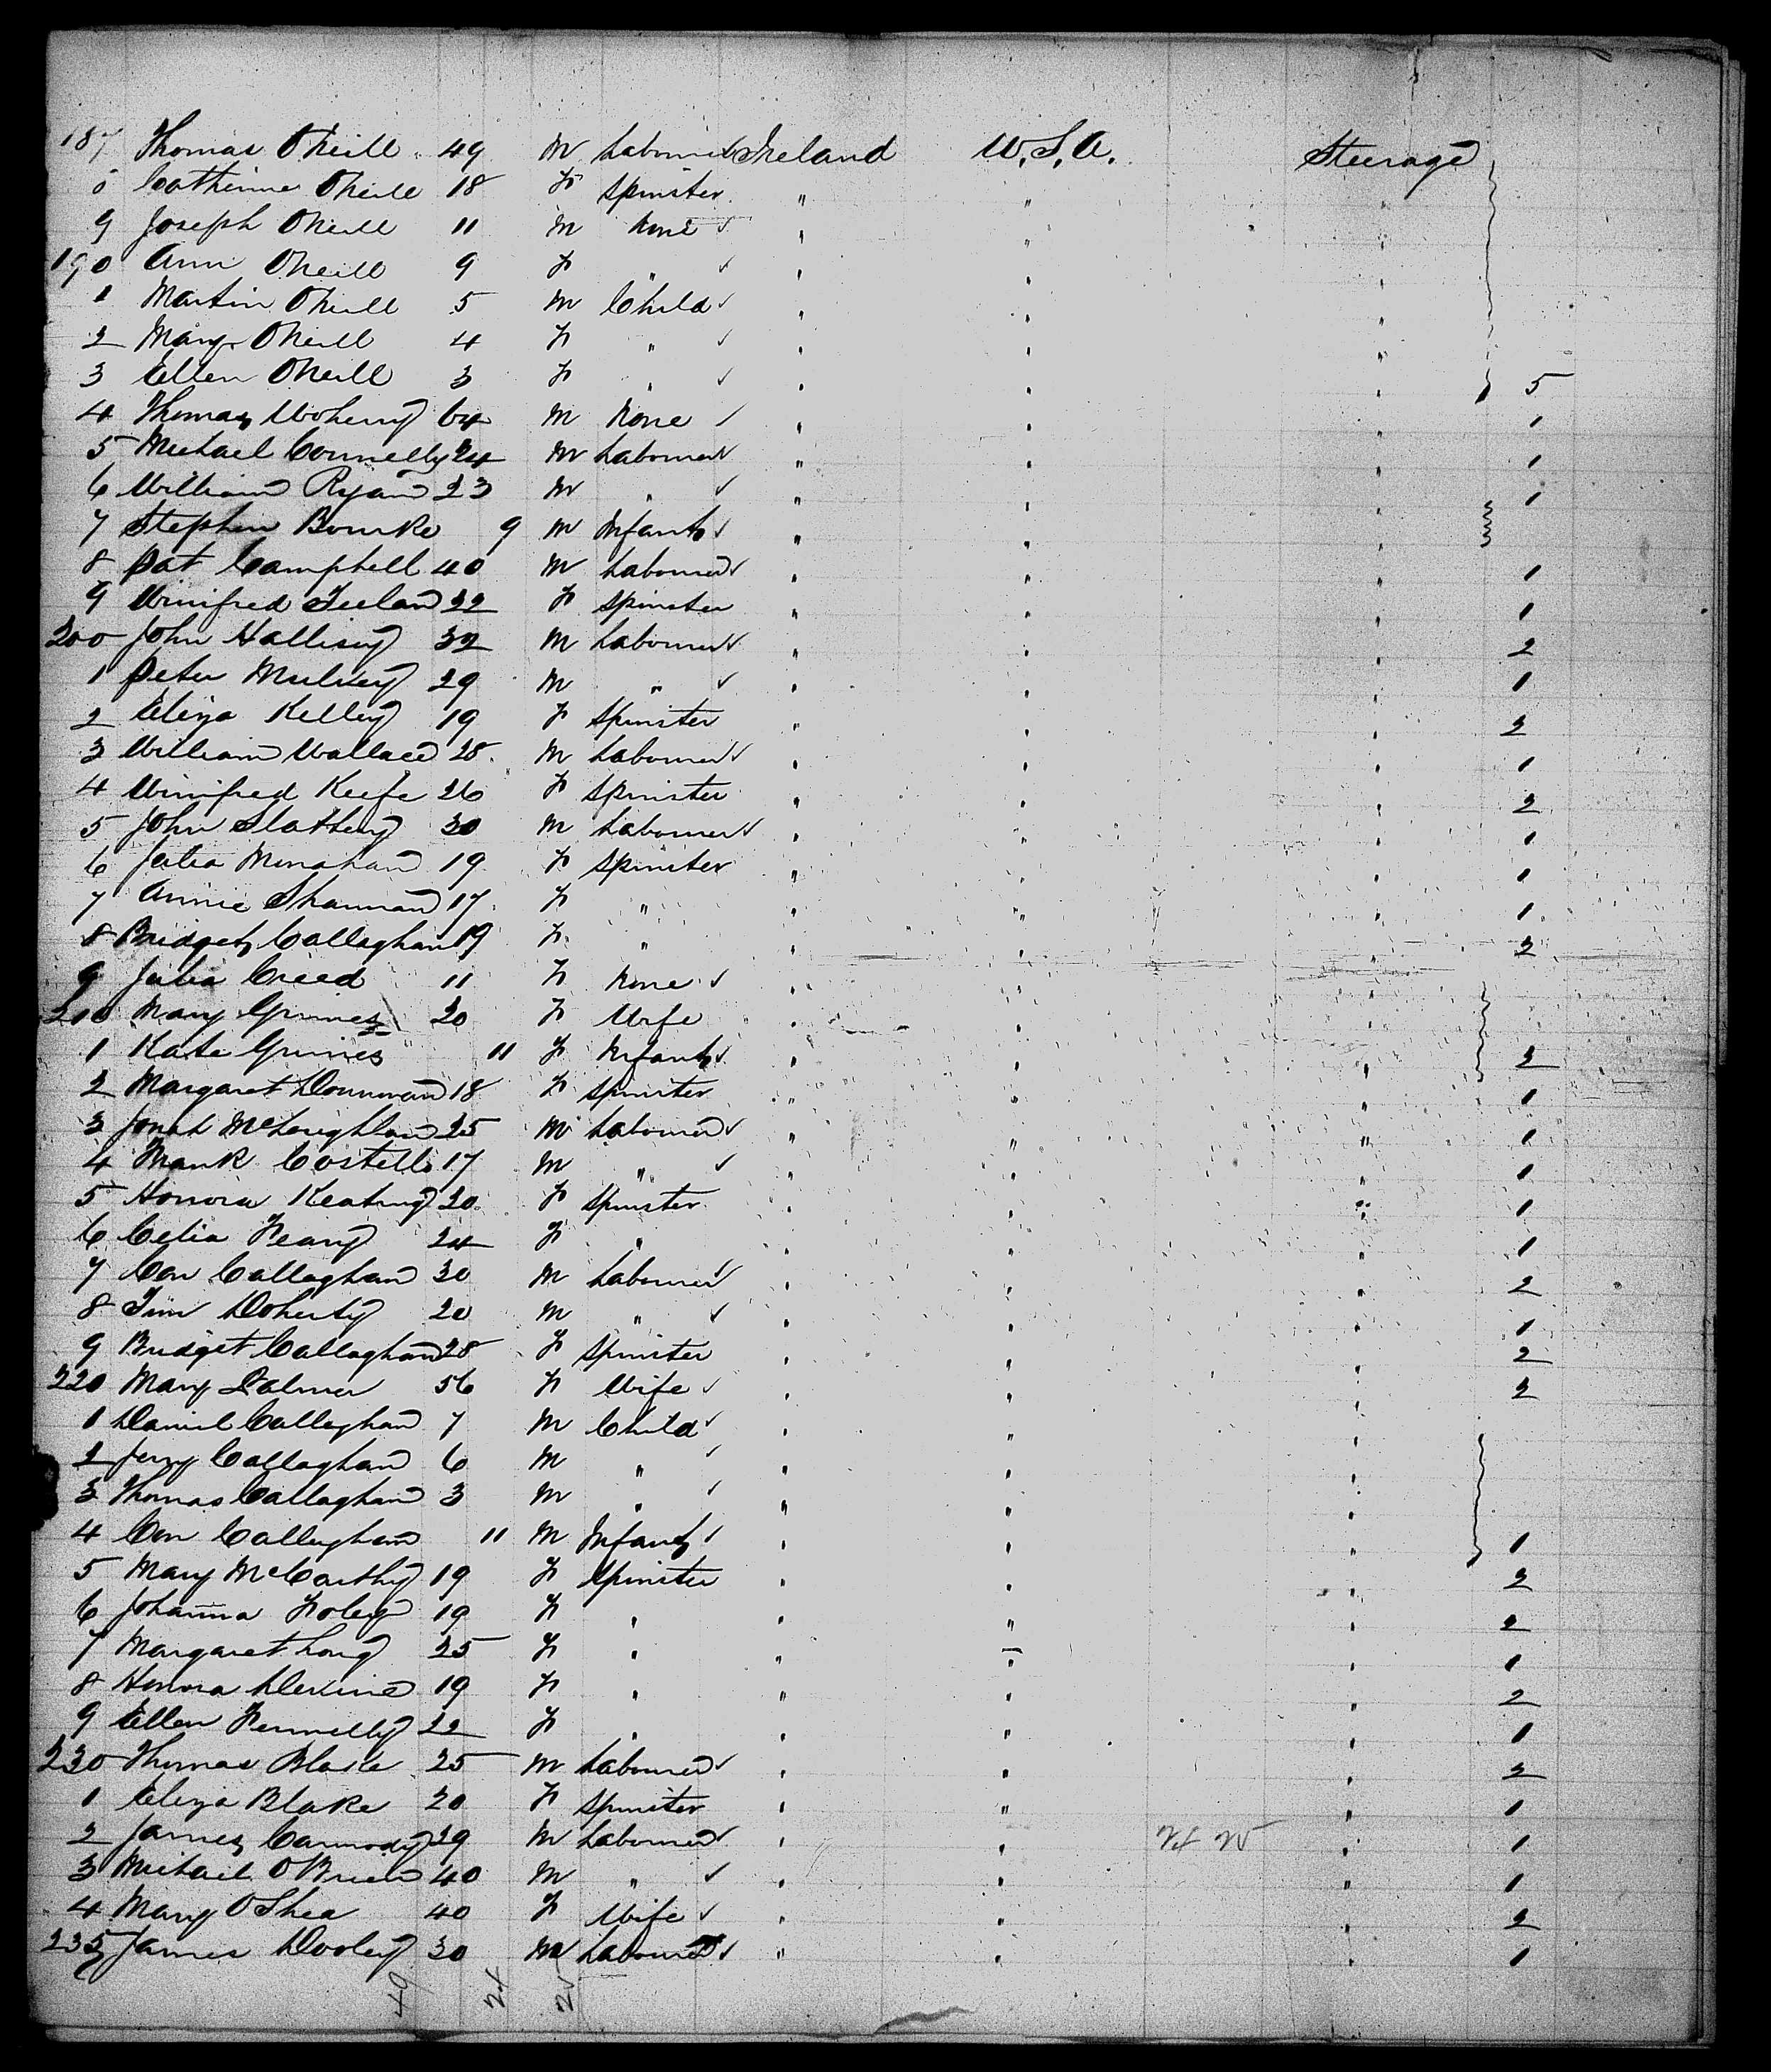 187 Thomas O'Neill 49 M Labourer Ireland U.S.A. Steerage
8 Catherine O'Neill 18 F Spinster " " "
9 Joseph O'Neill 11 M None " " "
190 Ann O'Neill 9 F " " " "
1 Martin O'Neill 5 M Child " " "
2 Mary O'Neill 4 F " " " "
3 Ellen O'Neill 3 F " " " " 5
4 Thomas 64 M None " " " 1
5 Michael Connelly 24 M Labourer " " " 1
6 William Ryan 23 M " " " " 1
7 Stephen Bourke 9 M Infant " " "
8 Pat Campbell 40 M Labourer " " " 1
9 Winifred 22 F Spinster " " " 1
200 John Hallisey 32 M Labourer " " " 2
1 Peter Mulvey 29 M " " " " 1
2 Eliza Kelley 19 F Spinster " " " 2
3 William Wallace 28 M Labourer " " " 1
4 Winifred Keefe 26 F Spinster " " " 2
5 John Slattery 30 M Labourer " " " 1
6 Julia Monahan 19 F Spinster " " " 1
7 Annie Shannan 17 F " " " " 1
8 Bridget Callaghan 19 F " " " " 2
9 Julia Creed 11 F None " " "
210 Mary Grimes 20 F Wife " " "
1 Kate Grimes 11 F Infant " " " 2
2 Margaret Donnovan 18 F Spinster " " " 1
3 McLoughlan 25 M Labourer " " " 1
4 Frank Costello 17 M " " " " 1
5 Honora Keating 20 F Spinster " " " 1
6 Celia 24 F " " " " 1
7 Con Callaghan 30 M Labourer " " " 2
8 Tim Doherty 20 M " " " " 1
9 Bridget Callaghan 28 F Spinster " " " 2
220 Mary Palmer 56 F Wife " " " 2
1 Daniel Callaghan 7 M Child " " "
2 Jerry Callaghan 6 M " " " "
3 Thomas Callaghan 3 M " " " "
4 Con Callaghan 11 M Infant " " " 1
5 Mary McCarthy 19 F Spinster " " " 2
6 Johanna Foley 19 F " " " " 2
7 Margaret Long 25 F " " " " 1
8 Honora Devine 19 F " " " " 2
9 Ellen Fennelly 22 F " " " " 1
230 Thomas Blake 25 M Labourer " " " 2
1 Eliza Blake 20 F Spinster " " " 1
2 James Carmody 29 M Labourer " " 24 25 " 1
3 Michael O'Brien 40 M " " " " 1
4 Mary O'Shea 40 F Wife " " " 2
235 James Dooley 30 M Labourer " " " 1
49 24 25